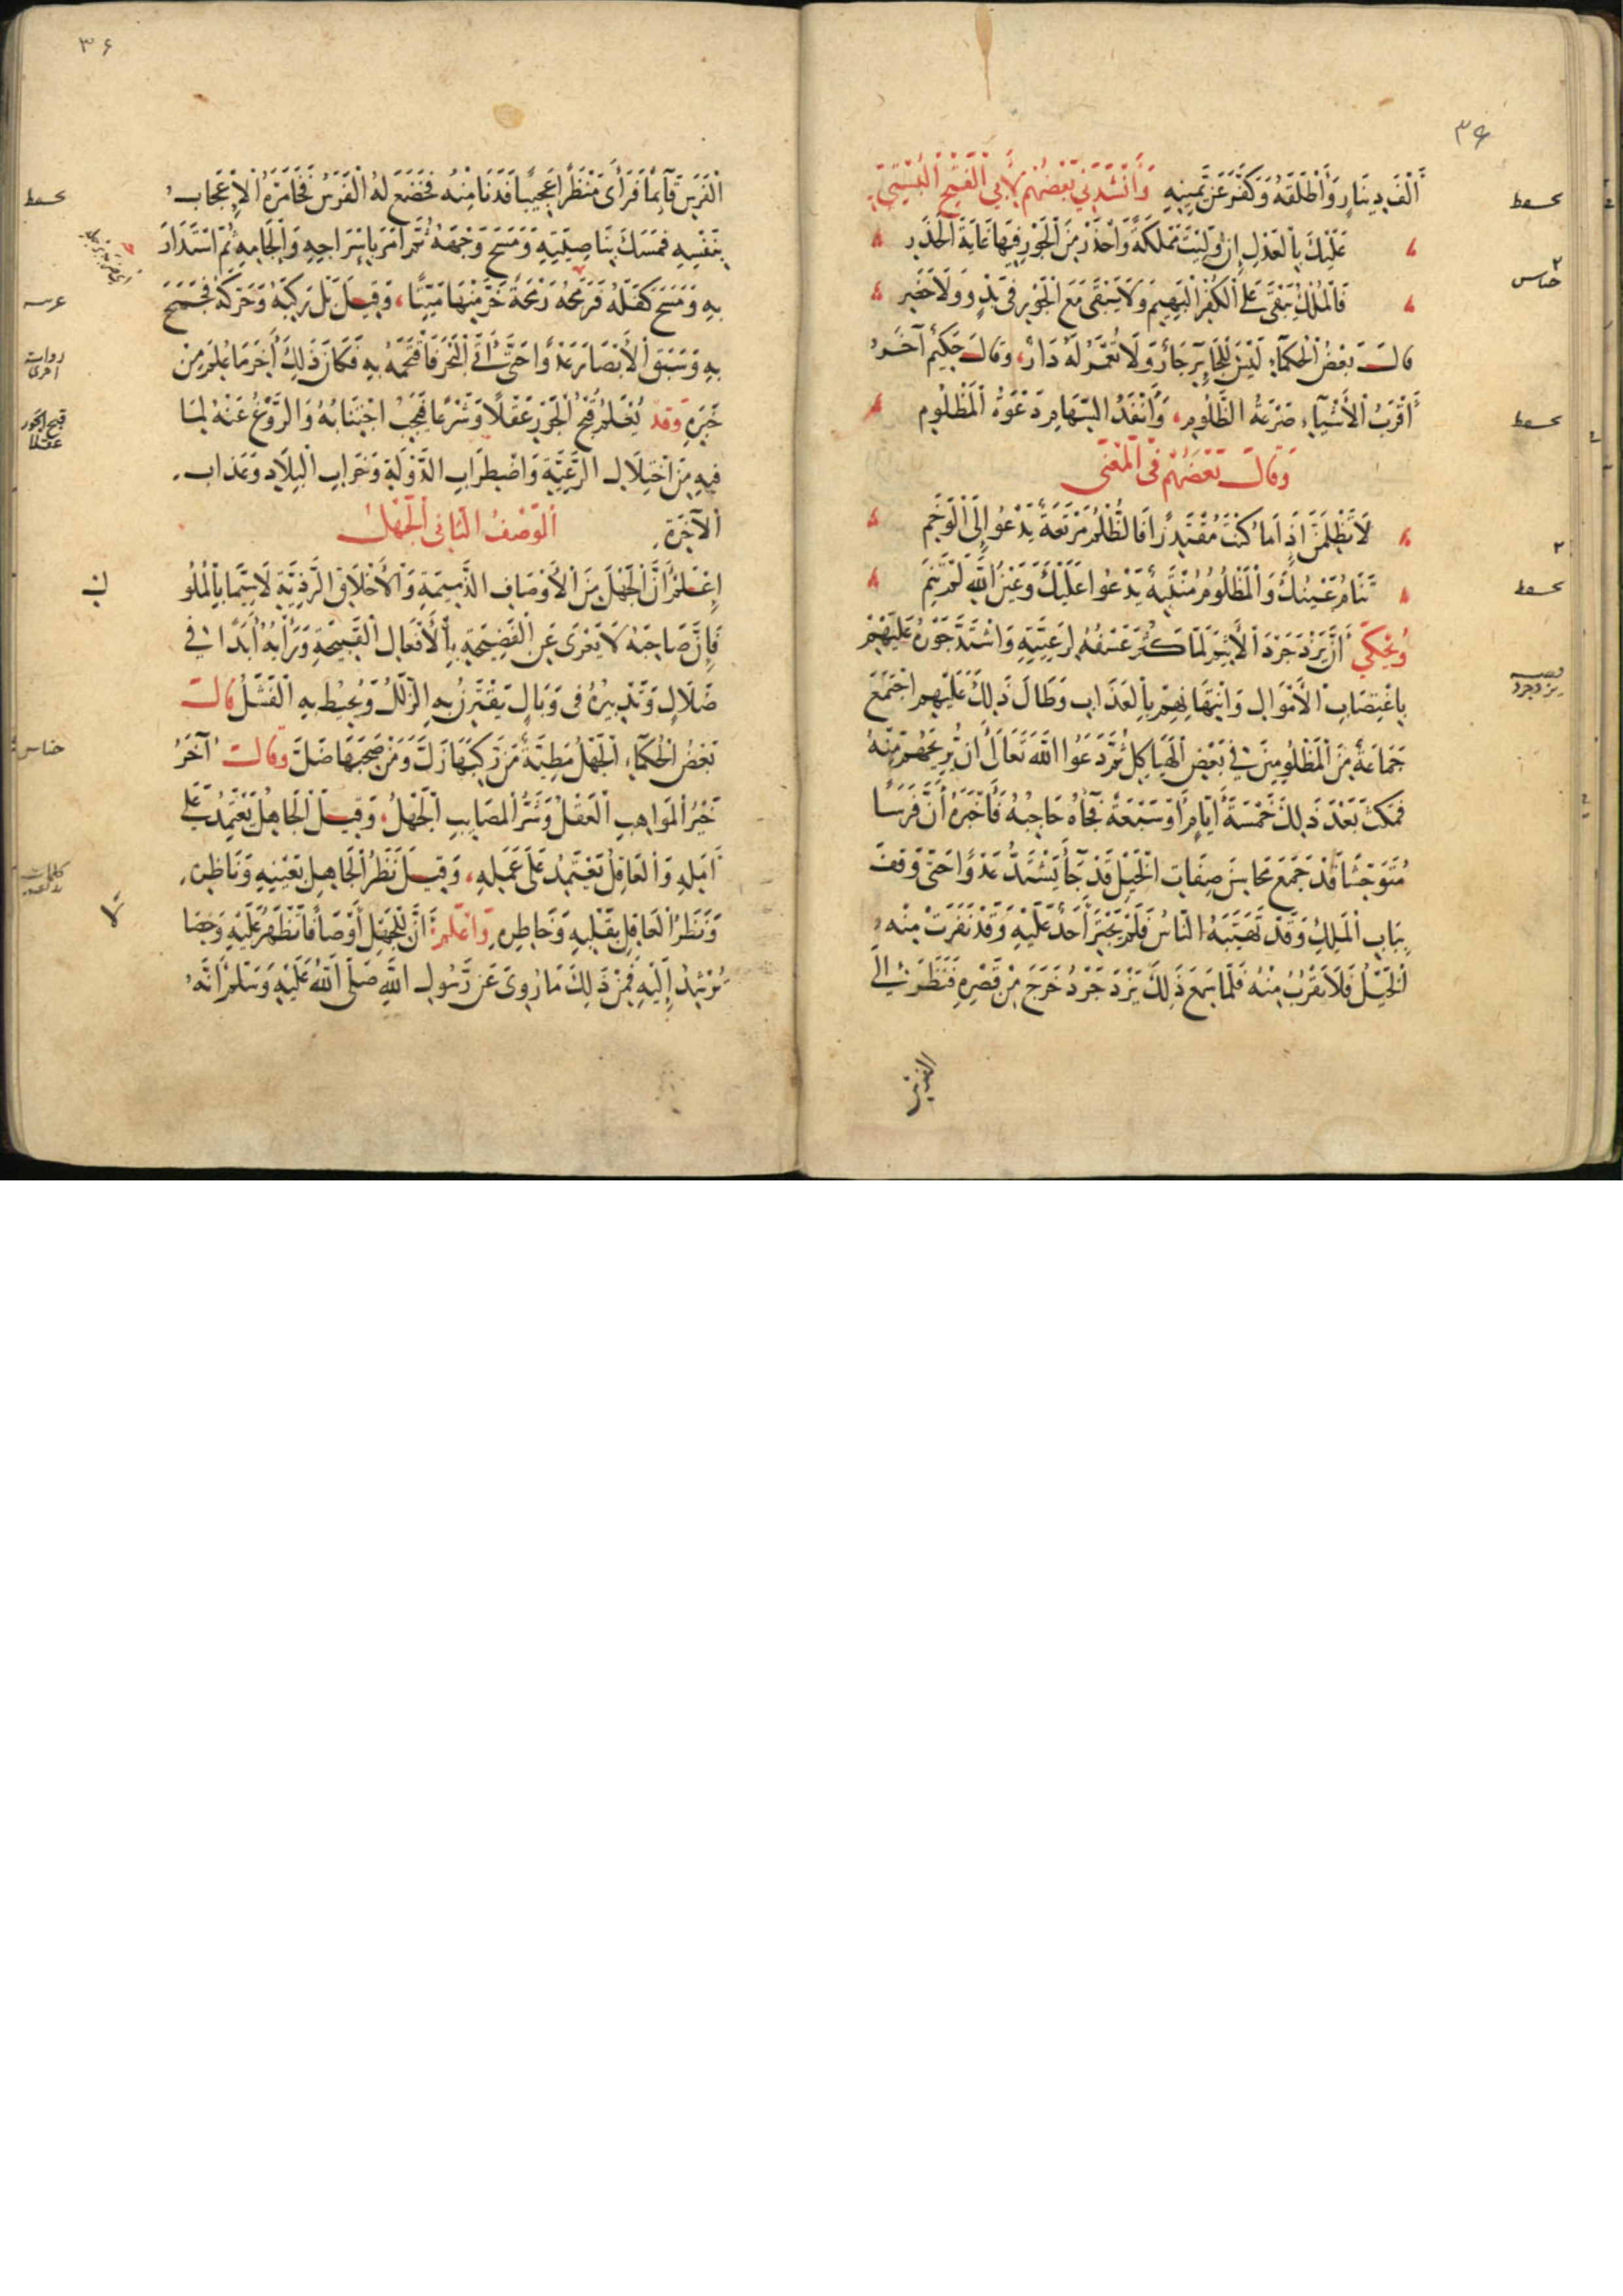 ٣٤
أَلْفَ دِينَارٍ وَأَطْلَقَهُ وَكَفَّرَ عَنْ يَمِينِهِ وَأَنْشَدَنِي بَعْضُهُمْ لِأَبِي الْفَتْحِ الْبُسْتِيِّ
عَلَيْكَ بِالْعَدْلِ إِنْ وُلِّيتَ مَمْلَكَةً وَاحْذَرْ مِنَ الْجَوْرِ فِيهَا غَايَةَ الْحَذَرِ
فَالْمُلْكُ يَبْقَى عَلَى الْكُفْرِ الْبَهِيمِ وَلَا يَبْقَى مَعَ الْجَوْرِ فِي بَدْوٍ وَلَا حَضَرِ
قَالَ بَعْضُ الْحُكَمَاءِ لَيْسَ لِلْجَائِرِ جَارٌ وَلَا تُعْمَرُ لَهُ دَارٌ، وَقَالَ حَكِيمٌ آخَرُ
أَقْرَبُ الْأَشْيَاءِ صَرْعَةُ الظَّلُومِ، وَأَنْفَذُ السِّهَامِ دَعْوَةُ الْمَظْلُومِ
وَقَالَ بَعْضُهُمْ فِي الْمَعْنَى
لَا تَظْلِمَنَّ إِذَا مَا كُنْتَ مُقْتَدِرًا فَالظُّلْمُ مَرْتَعَةٌ يَدْعُو إِلَى الْوَخَمِ
تَنَامُ عَيْنُكَ وَالْمَظْلُومُ مُنْتَبِهٌ يَدْعُوا عَلَيْكَ وَعَيْنُ اللَّهِ لَمْ تَنَمِ
وَيُحْكَى أَنَّ يَزْدَجَرْدَ الْأَثِيمَ لَمَّا كَثُرَ عَسْفُهُ لِرَعِيَّتِهِ وَاشْتَدَّ جَوْرُهُ عَلَيْهِمْ
بِاغْتِصَابِ الْأَمْوَالِ وَانْتِهَانِهِمْ بِالْعَذَابِ وَطَالَ ذَلِكَ عَلَيْهِمْ اجْتَمَعَ
جَمَاعَةٌ مِنَ الْمَظْلُومِينَ فِي بَعْضِ الْهَيَاكِلِ ثُمَّ دَعَوُا اللَّهَ تَعَالَى أَنْ يُرِيحَهُمْ مِنْهُ
فَمَكَثَ بَعْدَ ذَلِكَ خَمْسَةَ أَيَّامٍ أَوْ سَبْعَةً فَجَاءَهُ حَاجِبُهُ فَأَخْبَرَهُ أَنَّ فَرَسًا
مُتَوَحِّشًا قَدْ جَمَعَ مَحَاسِنَ صِفَاتِ الْخَيْلِ قَدْ جَاءَ يَشْتَدُّ عَدْوًا حَتَّى وَقَفَ
بِبَابِ الْمَلِكِ وَقَدْ تَهَيَّبَهُ النَّاسُ فَلَمْ يَجْتَرِ أَحَدٌ عَلَيْهِ وَقَدْ نَفَرَتْ مِنْهُ
الْخَيْلُ فَلَا تَقْرُبُ مِنْهُ فَلَمَّا سَمِعَ ذَلِكَ يَزْدَجَرْدُ خَرَجَ مِنْ قَصْرِهِ فَنَظَرَ إِلَى
الفرس
قصه
يزدجرد
٣٤
الْفَرَسِ قَائِمًا فَرَأَى مَنْظَرًا عَجِيبًا فَدَنَا مِنْهُ فَخَضَعَ لَهُ الْفَرَسُ فَخَامَرَهُ الْإِعْجَابُ
بِنَفْسِهِ فَمَسَكَ بِنَاصِيَتِهِ وَمَسَحَ وَجْهَهُ ثُمَّ أَمَرَ بِإِسْرَاجِهِ وَإِلْجَامِهِ ثُمَّ اسْتَدَارَ
بِهِ وَمَسَحَ كَفَلَهُ فَرَمَحَهُ رَمْحَةً خَرَّ مِنْهَا مَيِّتًا، وَقِيلَ بَلْ رَكِبَهُ وَحَرَّكَهُ فَجَمَحَ
بِهِ وَسَبَقَ الْأَبْصَارَ عَدْوًا حَتَّى أَتَى الْبَحْرَ فَاقْتَحَمَهُ بِهِ فَكَانَ ذَلِكَ أَخِرَ مَا عُلِمَ مِنْ
خَبَرِهِ وَقَدْ يُعْلَمُ قُبْحُ الْجَوْرِ عَقْلًا وَشَرْعًا فَيَجِبُ اجْتِنَابُهُ وَالرَّوْغُ عَنْهُ لِمَا
فِيهِ مِنْ اخْتِلَالِ الرَّعِيَّةِ وَاضْطِرَابِ الدَّوْلَةِ وَخَرَابِ الْبِلَادِ وَعَذَابِ
الْآخِرَةِ. الْوَصْفُ الثَّانِي الْجَهْلُ
إِعْلَمْ أَنَّ الْجَهْلَ مِنَ الْأَوْصَافِ الذَّمِيمَةِ وَالْأَخْلَاقِ الرَّدِيَّةِ لَا سِيَّمَا بِالْمُلُوكِ
فَإِنَّ صَاحِبَهُ لَا يَعْرَى عَنِ الْفَضِيحَةِ بِالْأَفْعَالِ الْقَبِيحَةِ وَرَأْيُهُ أَبَدًا فِي
ضَلَالٍ وَتَدْبِيرُهُ فِي وَبَالٍ يَقْتَرِنُ بِهِ الزَّلَلُ وَيُحِيطُ بِهِ الْفَشَلُ قَالَ
بَعْضُ الْحُكَمَاءِ الْجَهْلُ مَطِيَّةٌ مَنْ رَكِبَهَا زَلَّ وَمَنْ صَحِبَهَا ضَلَّ وَقَالَ آخَرُ
خَيْرُ الْمَوَاهِبِ الْعَقْلُ وَشَرُّ الْمَصَايِبِ الْجَهْلُ، وَقِيلَ الْجَاهِلُ يَعْتَمِدُ عَلَى
أَمَلِهِ وَالْعَاقِلُ يَعْتَمِدُ عَلَى عَمَلِهِ، وَقِيلَ نَظَرُ الْجَاهِلِ بِعَيْنِهِ وَنَاظِرِهِ
وَنَظَرُ الْعَاقِلِ بِقَلْبِهِ وَخَاطِرِهِ وَاعْلَمْ أَنَّ لِلْجَهْلِ أَوْصَافًا تَظْهَرُ عَلَيْهِ وَخِصَا
تُرْشِدُ إِلَيْهِ فَمِنْ ذَلِكَ مَا رُوِيَ عَنْ رَسُولِ اللَّهِ صَلَّى اللَّهُ عَلَيْهِ وَسَلَّمَ أَنَّهُ
قبح الجور
عقلا